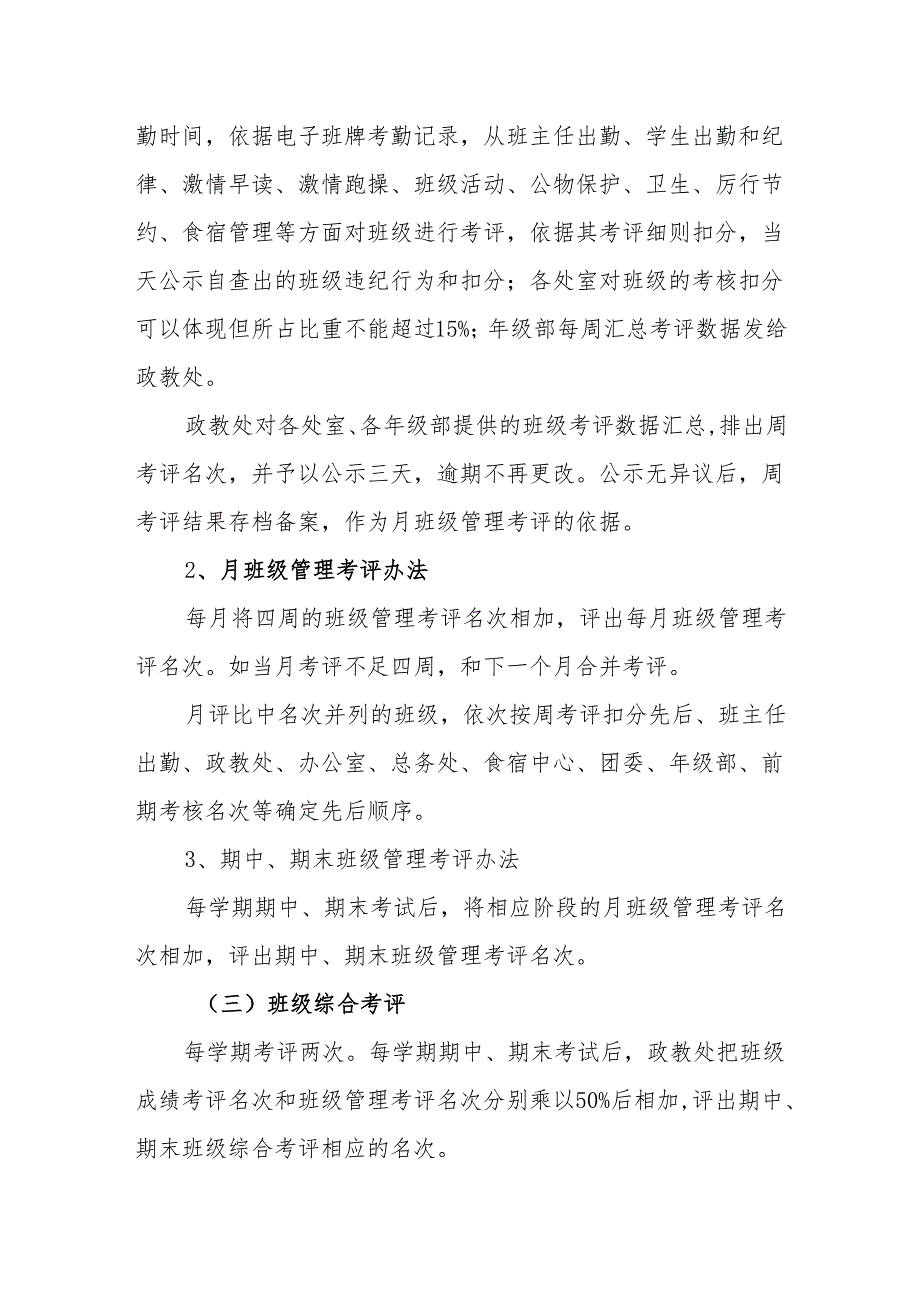 勤时间，依据电子班牌考勤记录，从班主任出勤、学生出勤和纪
律、激情早读、激情跑操、班级活动、公物保护、卫生、厉行节
约、食宿管理等方面对班级进行考评，依据其考评细则扣分，当
天公示自查出的班级违纪行为和扣分；各处室对班级的考核扣分
可以体现但所占比重不能超过15%；年级部每周汇总考评数据发给
政教处。
政教处对各处室、各年级部提供的班级考评数据汇总,排出周
考评名次，并予以公示三天，逾期不再更改。公示无异议后，周
考评结果存档备案，作为月班级管理考评的依据。
2、月班级管理考评办法
每月将四周的班级管理考评名次相加，评出每月班级管理考
评名次。如当月考评不足四周，和下一个月合并考评。
月评比中名次并列的班级，依次按周考评扣分先后、班主任
出勤、政教处、办公室、总务处、食宿中心、团委、年级部、前
期考核名次等确定先后顺序。
3、期中、期末班级管理考评办法
每学期期中、期末考试后，将相应阶段的月班级管理考评名
次相加，评出期中、期末班级管理考评名次。
（三）班级综合考评
每学期考评两次。每学期期中、期末考试后，政教处把班级
成绩考评名次和班级管理考评名次分别乘以50%后相加,评出期中、
期末班级综合考评相应的名次。